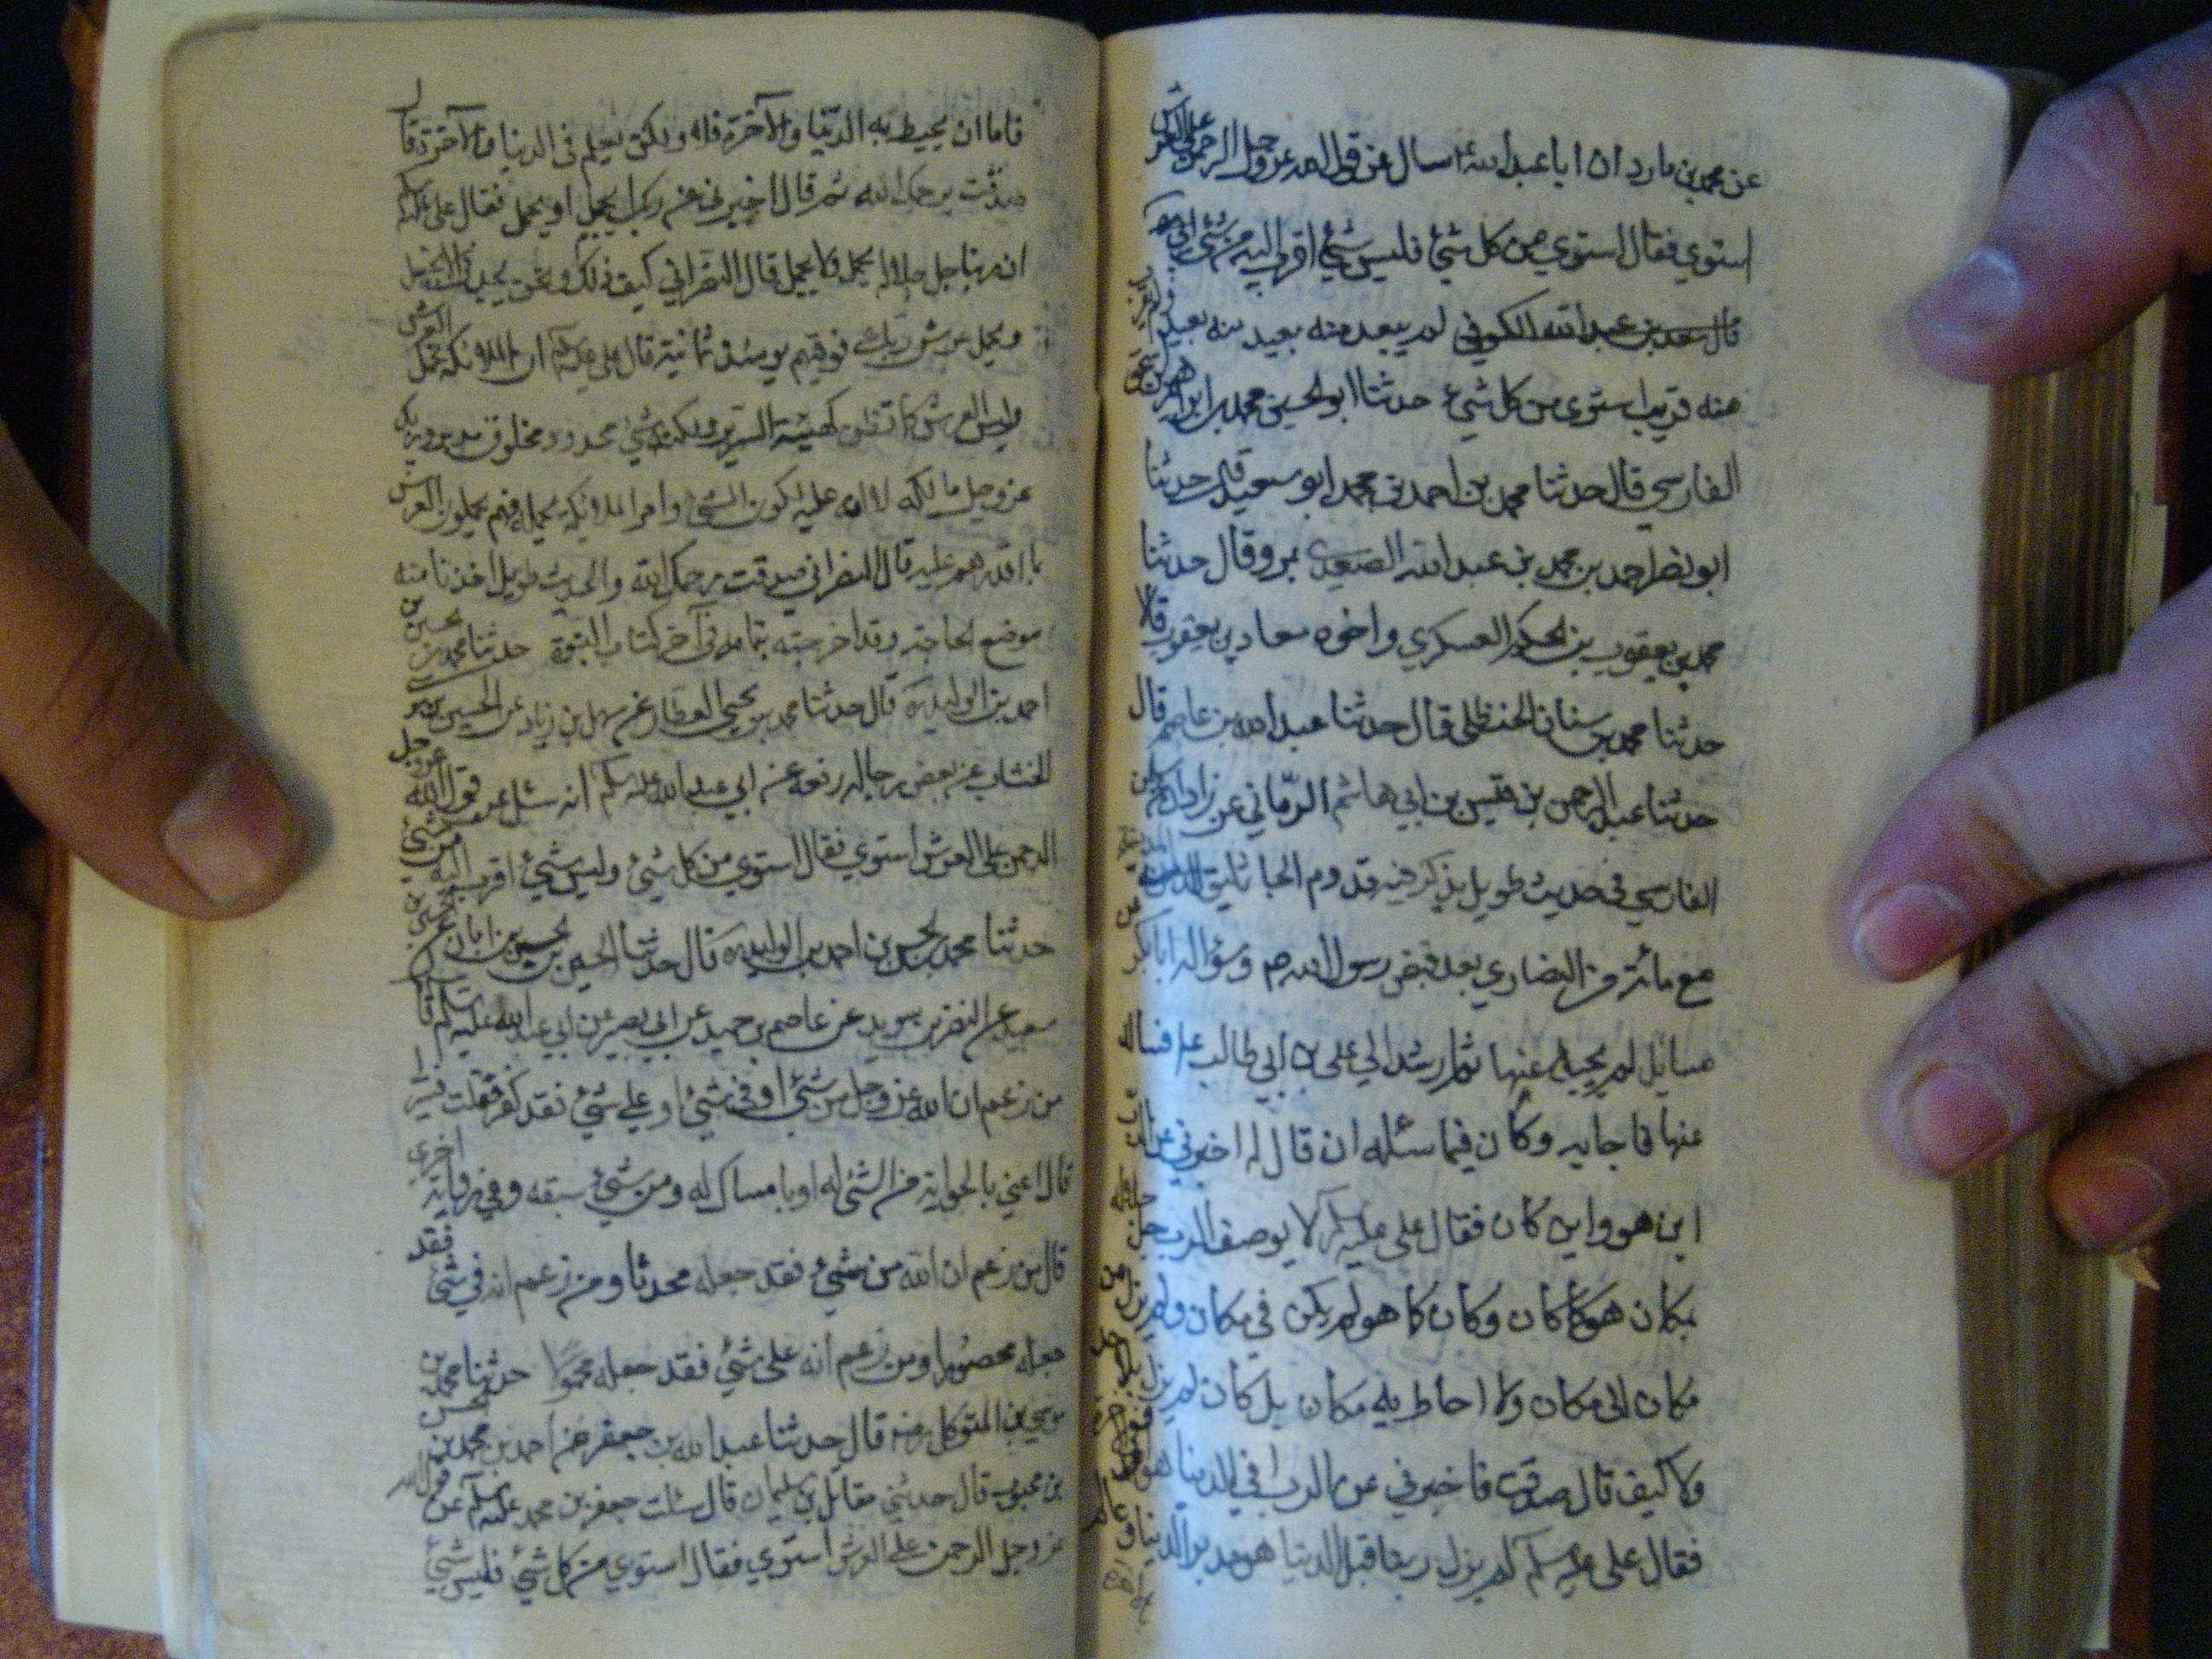 عن محمد بن مارد ان ابا عبد الله ع سال عن قول الله عز وجل الرحمن على العرش
استوي فقال استوي من كل شئ فليس شئ اقرب اليه من شئ
قال محمد بن عبد الله الكوفي لم يبعد منه بعيد
منه قريب استوى من كل شئ حدثنا ابو الحسين محمد بن ابراهيم
الفارسي قال حدثنا محمد بن احمد بن محمد ابو سعيد قال حدثنا
ابو نصر احمد بن محمد بن عبد الله الصغدي بمرو قال حدثنا
محمد بن يعقوب بن الحكم العسكري واخوه معاد بن يعقوب قالا
حدثنا محمد بن سنان الحنظلي قال حدثنا عبد الله بن عاصم قال
حدثنا عبد الرحمن بن قيس بن ابي هاشم الرماني عن زادان عن سلمان
الفارسي في حديث طويل يذكر فيه قدوم الجاثليق المدينة
مع مائة من النصاري بعد قبض رسول الله ص وسؤاله ابا بكر عن
مسايل لم يجبه عنها ثم ارشد الي علي بن ابي طالب ع فساله
عنها فاجابه وكان فيما سئله ان قال له اخبرني عن الرب
اين هو واين كان فقال علي عليه السلم لا يوصف الرب جل جلاله
بمكان هو كما كان وكان كما هو لم يكن في مكان ولم يزل من
مكان الى مكان ولا احاط به مكان بل كان لم يزل بلا حد
ولا كيف قال صدقت فاخبرني عن الرب افي الدنيا هو
فقال علي عليه السلم لم يزل ربنا قبل الدنيا هو مدبر الدنيا وعالم
فاما ان يحيط به الدنيا والآخرة فلا ولكن يعلم في الدنيا والآخرة قال
صدقت يرحمك الله ثم قال اخبرني عن ربك ايحمل او يحمل فقال علي عليه السلم
ان ربنا جل جلاله يحمل ولا يحمل قال النصراني كيف ذلك ونحن نجد في الانجيل
ويحمل عرش ربك فوقهم يومئذ ثمانية قال علي عليه السلم ان الملائكة تحمل العرش
وليس العرش كما تظن كهيئة السرير ولكنه شئ محدود مخلوق مدبر وربك
عز وجل مالكه لا انه عليه ككون الشئ وامر الملائكة بحمله فهم يحملون العرش
بما اقدرهم عليه قال النصراني صدقت يرحمك الله والحديث طويل اخذنا منه
موضع الحاجة وقد اخرجته بتمامه في آخر كتاب النبوة حدثنا محمد بن الحسن بن
احمد بن الوليد ره قال حدثنا محمد بن يحيي العطار عن سهل بن زياد عن الحسن بن موسى
الخشاب عن بعض رجاله رفعه عن ابي عبد الله عليه السلم انه سئل عن قول الله عز وجل
الرحمن على العرش استوي فقال استوي من كل شئ وليس شئ اقرب اليه من شئ
حدثنا محمد بن الحسن بن احمد بن الوليد ره قال حدثنا الحسين بن الحسن بن ابان
سعيد عن النضر بن سويد عن عاصم بن حميد عن ابي بصير عن ابي عبد الله عليه السلم قال
من زعم ان الله عز وجل من شئ او في شئ او علي شئ فقد كفر فقلت فسر لي
قال اعني بالحواية من الشئ له او بامساك له ومن شئ سبقه وفي رواية اخري
قال من زعم ان الله من شئ فقد جعله محدثا ومن زعم انه في شئ فقد
جعله محصورا ومن زعم انه على شئ فقد جعله محمولا حدثنا محمد بن
موسى بن المتوكل ره قال حدثنا عبد الله بن جعفر عن احمد بن محمد عن الحسن
بن محبوب قال حدثني مقاتل بن سليمان قال سئلت جعفر بن محمد عليه السلم عن قول الله
عز وجل الرحمن على العرش استوي فقال استوي من كل شئ فليس شئ